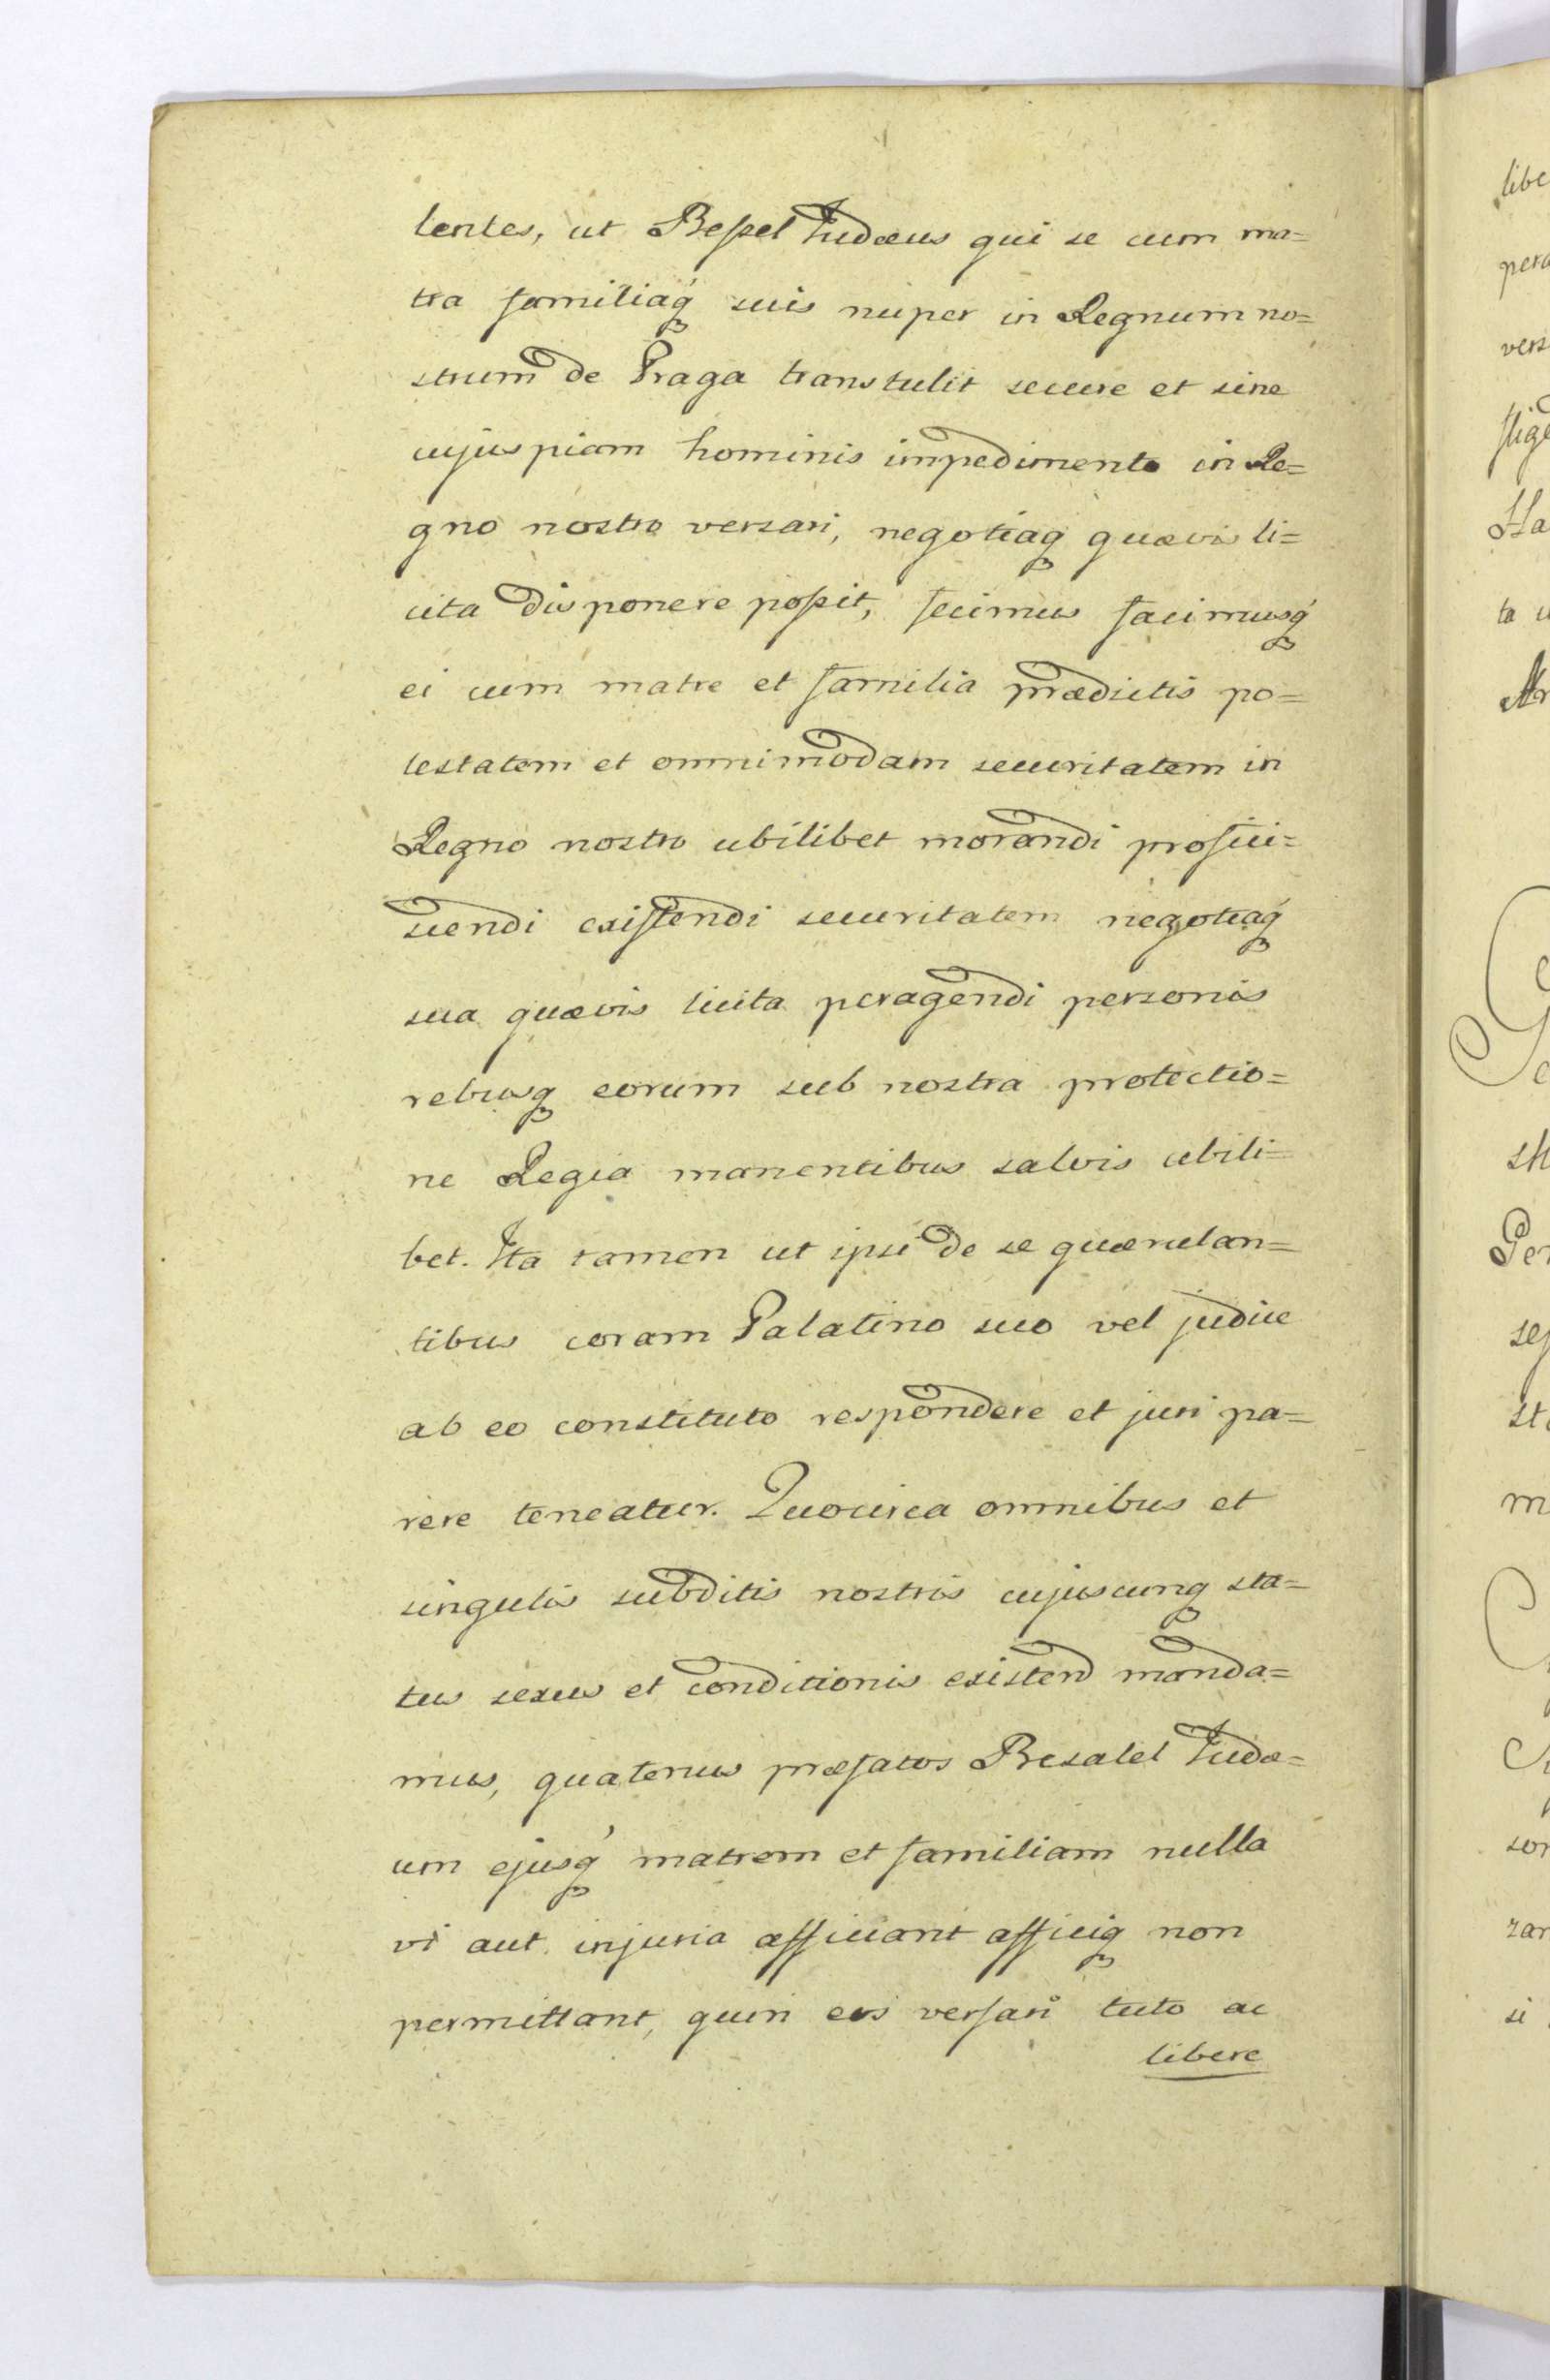 lentes, ut Beßel Judæus qui se cum ma=
tra familiaq́ suis nuper in Regnum no=
strum de Praga transtulit secure et sine
cujuspiam hominis impedimento in Re=
gno nostro versari, negotiaq quævis li=
cita disponere poßit, fecimus facimusq́
ei cum matre et familia prædictis po=
testatem et omnimodam securitatem in
Regno nostro ubilibet morandi profici=
scendi existendi securitatem negotiaq́
sua quævis licita peragendi personis
rebusq eorum sub nostra protectio=
ne Regia manentibus salvis ubili=
bet. Ita tamen ut ipsi de se quærulan=
tibus coram Palatino suo vel judice
ab eo constituto respondere et juri pa=
rere teneatur. Quocirca omnibus et
singulis subditis nostris cujuscunq sta=
tus sexus et conditionis existend manda=
mus, quatenus præfatos Besalel Judæ=
um ejusq́ matrem et familiam nulla
vi aut injuria afficiant afficiq non
permittant, quin eos versari tuto ac
libere